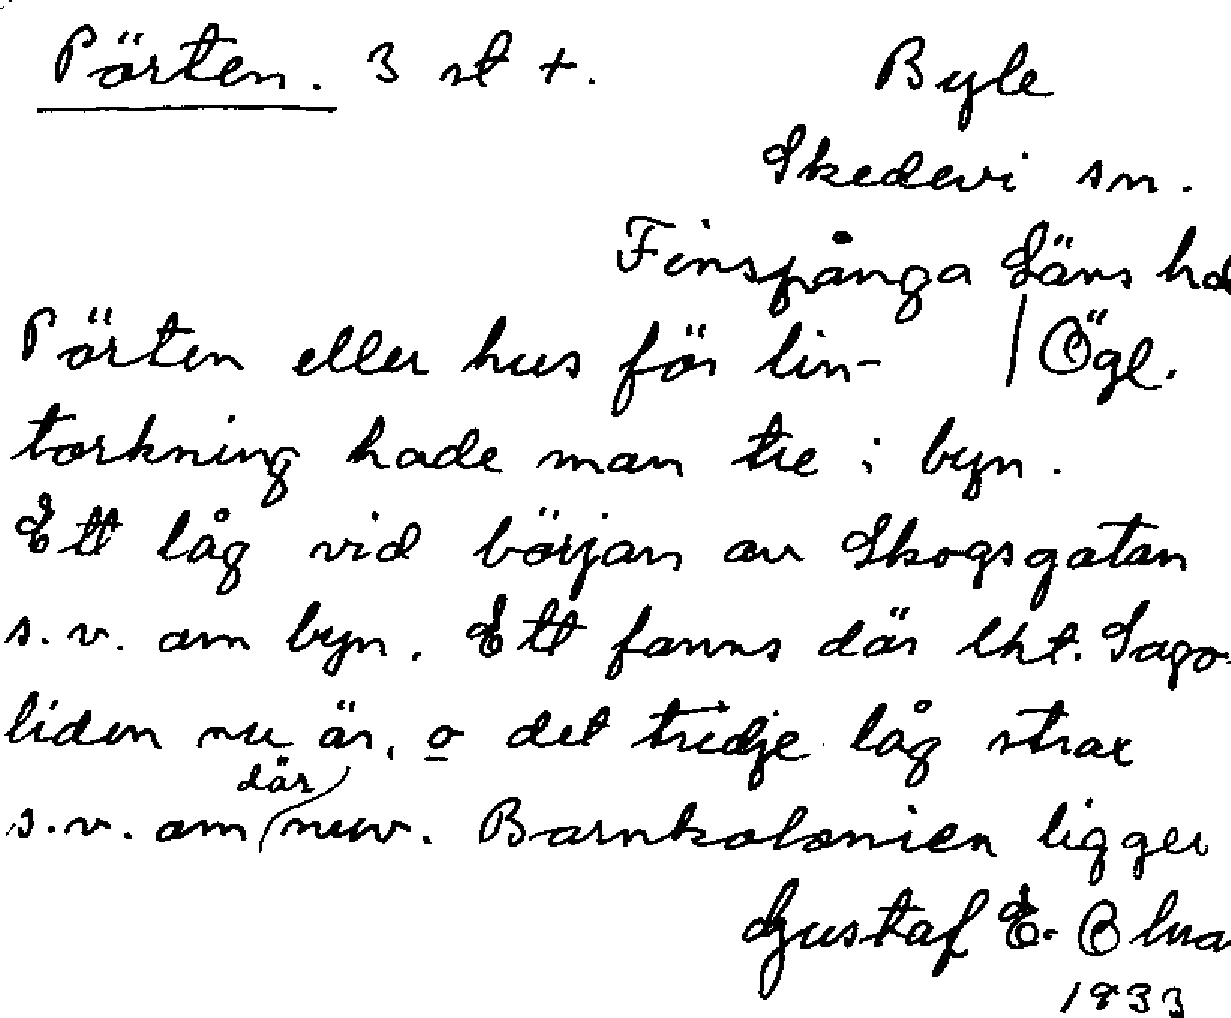 Pörten. 3 st +.
Byle
Skedevi sn.
Finspånga Läns hd
Pörten eller hus för lin- / Ögl.
torkning hade man tre i byn.
Ett låg vid början av Skogsgatan
s.v. om byn. Ett fanns där lht. Sago-
liden nu är, o det tridje låg strax
s.v. om där nuv. Barnkolonien ligger
Gustaf E.
1933